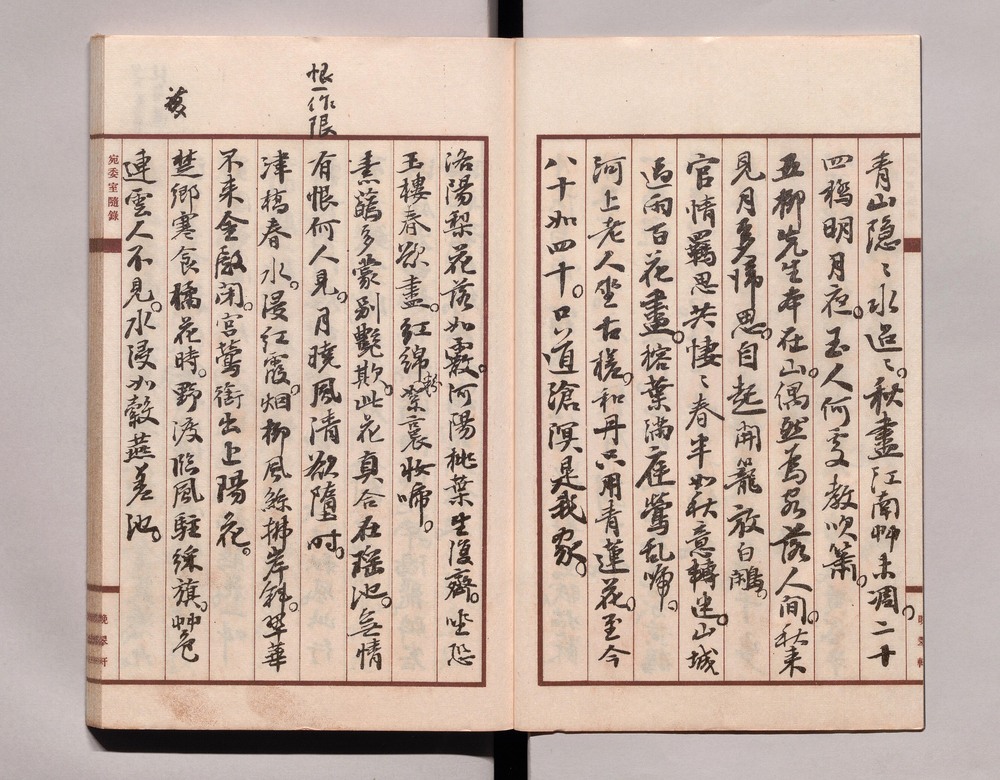 青山隐〻水迢〻。秋盡江南艸未凋。二十
四橋明月夜。玉人何處教吹簫。
五柳先生本在山。偶然爲客落人間。秋来
見月多歸思。自起開籠放白鷴。
官情羈思共悽〻。春半如秋意轉迷。山城
過雨百花盡。榕葉滿庭鶯乱啼。
河上老人坐古槎。和丹只用青蓮花。至今
八十如四十。口道滄溟是我家。
洛陽梨花落如霰。河陽桃葉生復齊。坐恐
玉樓春欲盡。紅綿粉絮裛妝啼。
素蘤多蒙别艷欺。此花真合在瑶池。無情
有恨何人見。月曉風清欲墮时。
恨一作限
津橋春水。浸紅霞。烟柳風絲拂岸斜。翠華
不来金殿闭。宫鶯銜出上陽花。
楚鄉寒食橘花時。野渡臨風駐綵旗。艸色
連雲人不見。水浸如縠燕差池。
宛委室隨錄